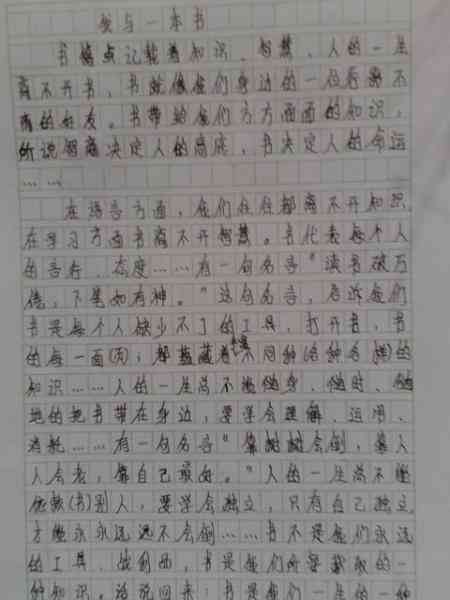 我与一本书
书籍点记载着知识、智慧、人的一生
离不开书,书就像我们身边的一位形影不
离的好友。书带给我们方方面面的知识,
所说智商决定人的高度,书决定人的命运
……
在语言方面,我们往往都离不开知识,
在学习方面书离不开智慧。书代表每个人
的言行、态度……有一句名言“读书破万
倦,下笔如有神。”这句名言,告诉我们
书是每个人缺少不了的工具,打开书,书
的每一面(页),都蕴藏着不同种(各种各样)的
知识……人的一生总不能随身、随时、随
地的把书带在身边,要学会理解、运用、
消耗……有一句名言“靠树树会倒,靠人
人会老,靠自己最好。”人的一生总不能
依赖(书)别人,要学会独立,只有自己独立,
才能永永远远不会倒……书不是我们永远
的工具、战利品,书是我们所要获取的一
种知识。话说回来:书是我们一生的一种